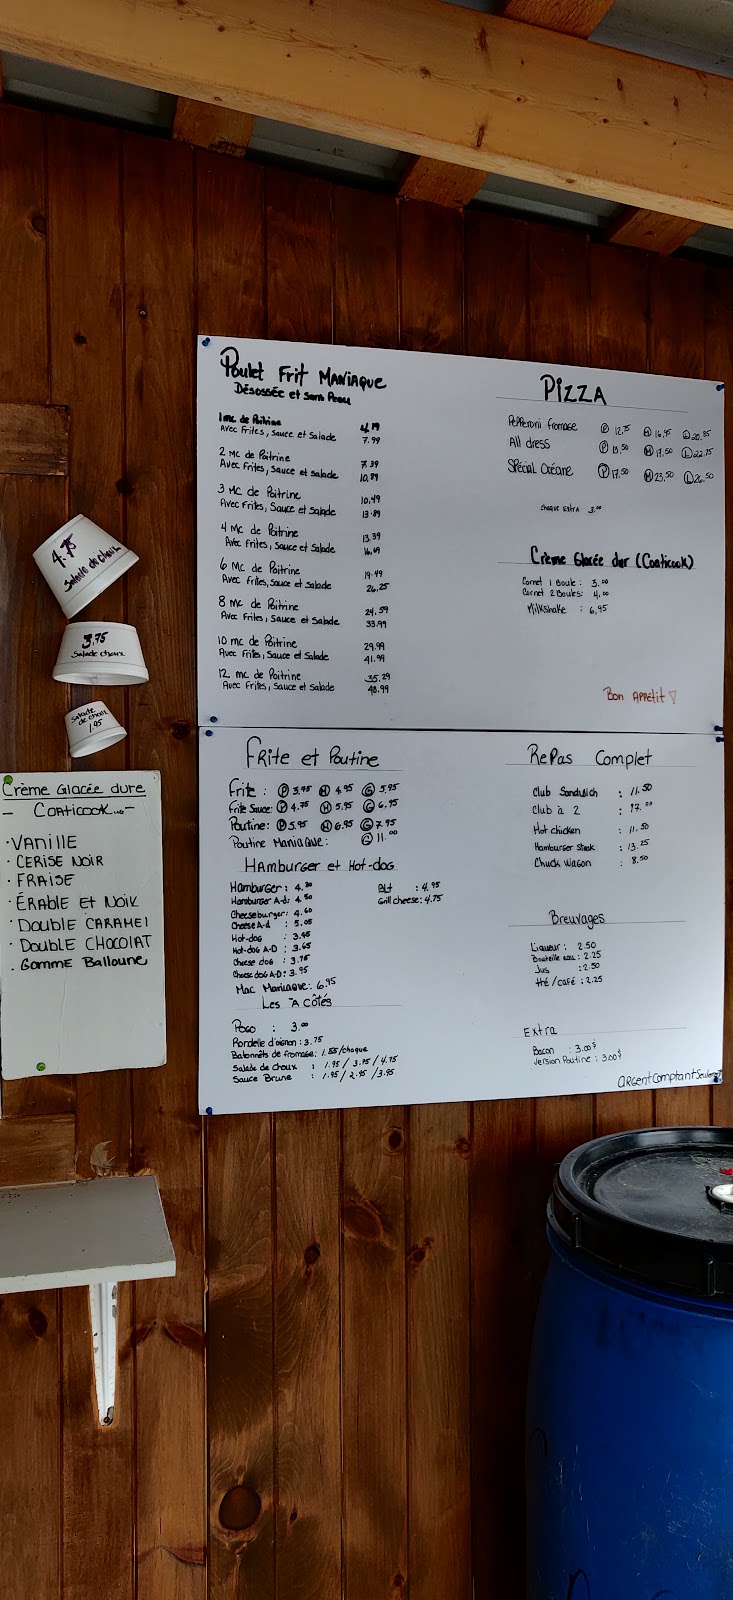 Poulet Frit Maniaque
Désossée et sans Peau
1 mc de Poitrine 4.19
Avec Frites, Sauce et Salade 7.99
2 mc de Poitrine 7.39
Avec Frites, Sauce et Salade 10.89
3 mc de Poitrine 10.49
Avec Frites, Sauce et Salade 13.89
4 mc de Poitrine 13.39
Avec Frites, Sauce et Salade 16.69
6 mc de Poitrine 19.49
Avec Frites, Sauce et Salade 26.25
8 mc de Poitrine 24.59
Avec Frites, Sauce et Salade 33.99
10 mc de Poitrine 29.99
Avec Frites, Sauce et Salade 41.99
12 mc de Poitrine 35.29
Avec Frites, Sauce et Salade 48.99
Pizza
Pepperoni fromage P 12.75 M 16.95 L 20.95
All dress P 13.50 M 17.50 L 22.75
Spécial Océane P 17.50 M 23.50 L 26.50
Chaque Extra 3.00
Crème Glacée dur (Coaticook)
Cornet 1 Boule : 3.00
Cornet 2 Boules : 4.00
Milkshake : 6.95
Bon Appétit
4.75
Salade de choux
3.75
Salade choux
Salade
de choux
1.95
Crème Glacée dure
- Coaticook -
· Vanille
· Cerise Noir
· Fraise
· Érable et Noix
· Double Caramel
· Double Chocolat
· Gomme Balloune
Frite et Poutine
Frite : P 3.95 M 4.95 G 5.95
Frite Sauce : P 4.75 M 5.95 G 6.95
Poutine : P 5.95 M 6.95 G 7.95
Poutine Maniaque : G 11.00
Hamburger et Hot-dog
Hamburger : 4.30
Hamburger A-d : 4.50
Cheeseburger : 4.60
Cheese A-d : 5.05
Hot-dog : 3.45
Hot-dog A-D : 3.65
Cheese dog : 3.75
Cheese dog A-D : 3.95
Mac Maniaque : 6.95
Blt : 4.95
Grill cheese : 4.75
Les "A Côtés
Pogo : 3.00
Rondelle d'oignon : 3.75
Batonnêts de fromage : 1.55/chaque
Salade de choux : 1.95 / 3.75 / 4.75
Sauce Brune : 1.95 / 2.95 / 3.95
Repas Complet
Club Sandwich : 11.50
Club à 2 : 17.00
Hot chicken : 11.50
Hamburger Steak : 13.25
Chuck Wagon : 8.50
Breuvages
Liqueur : 2.50
Bouteille eau : 2.25
Jus : 2.50
thé / café : 2.25
Extra
Bacon : 3.00$
Version Poutine : 3.00$
Argent Comptant Seulement